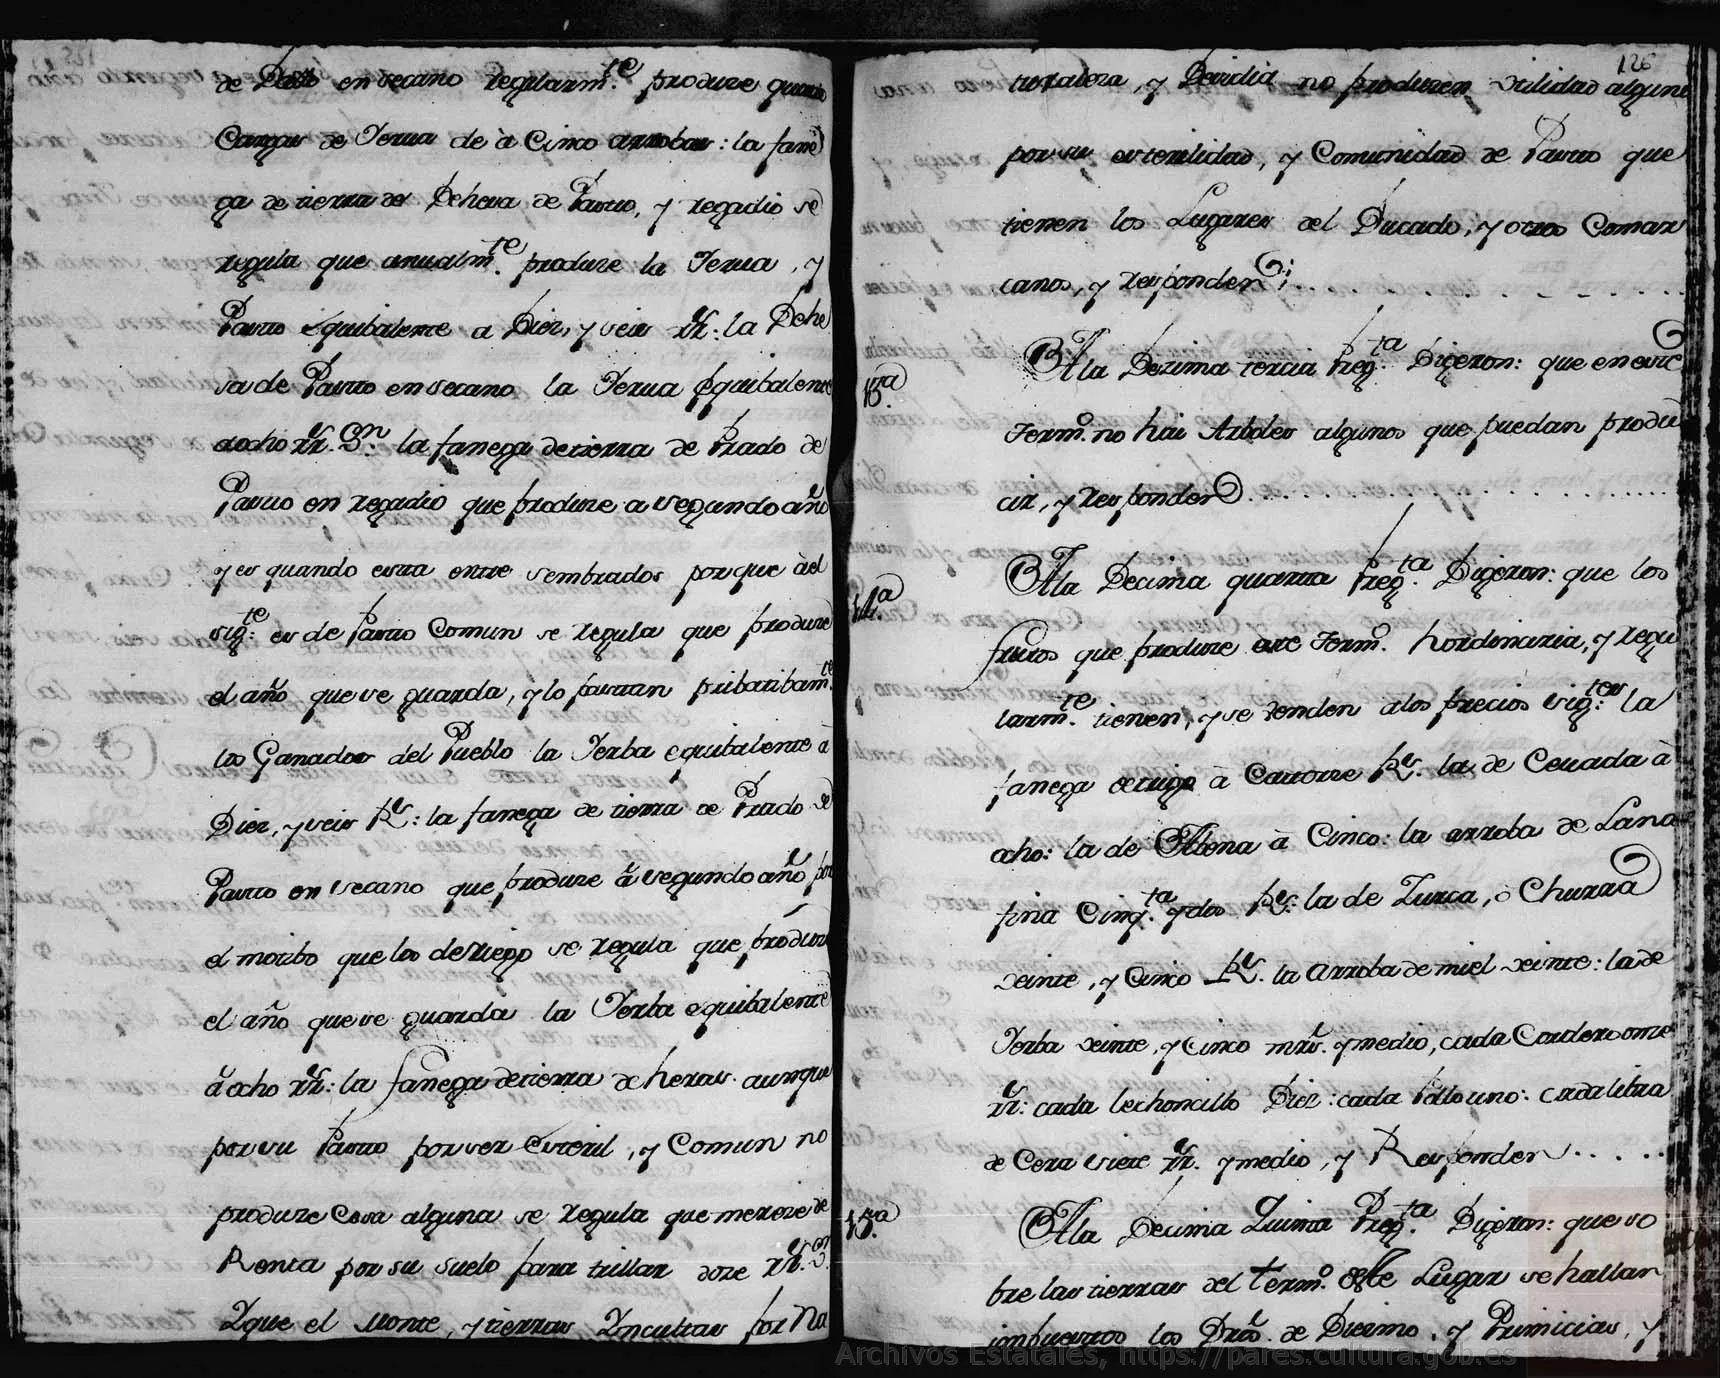 de Pasto en secano regularm.te produze quatro
Cargas de Yerua de à Cinco arrobas: la fane
ga de tierra de Dehesa de Pasto, y regadio se
regula que anualm.te produze la Yerua, y
Pasto equibalente a Diez, y seis rr.s: la Dehe
sa de Pasto en secano la Yerua equibalente
aocho rr.s Vn: la fanega detierra de Prado de
Pasto en regadio que produze a segundo año
y es quando esta entre sembrados por que àel
sig.te es de Pasto Comun se regula que produze
el año que se guarda, y lo pastan pribatibam.te
los Ganados del Pueblo la Yerba equibalente à
Diez, y seis R.s: la fanega de tierra de Prado de
Pasto en secano que produze à segundo año por
el motibo que los de Riego se regula que produze
el año que se guarda la Yerba equibalente
à ocho rr.s: la fanega detierra de heras aunque
por su Pasto por ser Esteril, y Comun no
produze Cosa alguna se regula que mereze de
Renta por su suelo para trillar doze rr.s Vn.
Yque el Monte, y tierras Yncultas por Na
126
turaleza, y Desidia no produzen vtilidad alguna
por su esterilidad, y Comunidad de Pasto que
tienen los Lugares del Ducado, y otros Comar
canos, y responden
13.a
A la Dezima tercia Preg.ta Digeron: que en este
Term.o no hai Arboles algunos que puedan produ
cir, y responden
14.a
A la Decima quarta Preg.ta Digeron: que los
frutos que produze este Term.o hordinaria, y regu
larm.te tienen, y se venden alos precios sig.tes: la
fanega de trigo à Catorze R.s. la de Ceuada à
ocho: la de Abena à Cinco: la arroba de Lana
fina Cinq.ta y dos R.s: la de Zurca, ò Churra
veinte, y Cinco R.s. la arroba de miel veinte: la de
Yerba veinte, y Cinco mrs. y medio, cada Cordero onze
rr.s: cada lechoncillo Diez: cada Pollo uno: cada libra
de Cera siete rr.s. y medio, y Responden
15.a
A la Decima Quinta Preg.ta Digeron: que so
bre las tierras del term.o deste Lugar se hallan
impuestos los Dros. de Diezmo, y Primicias, y
Archivos Estatales, https://pares.cultura.gob.es